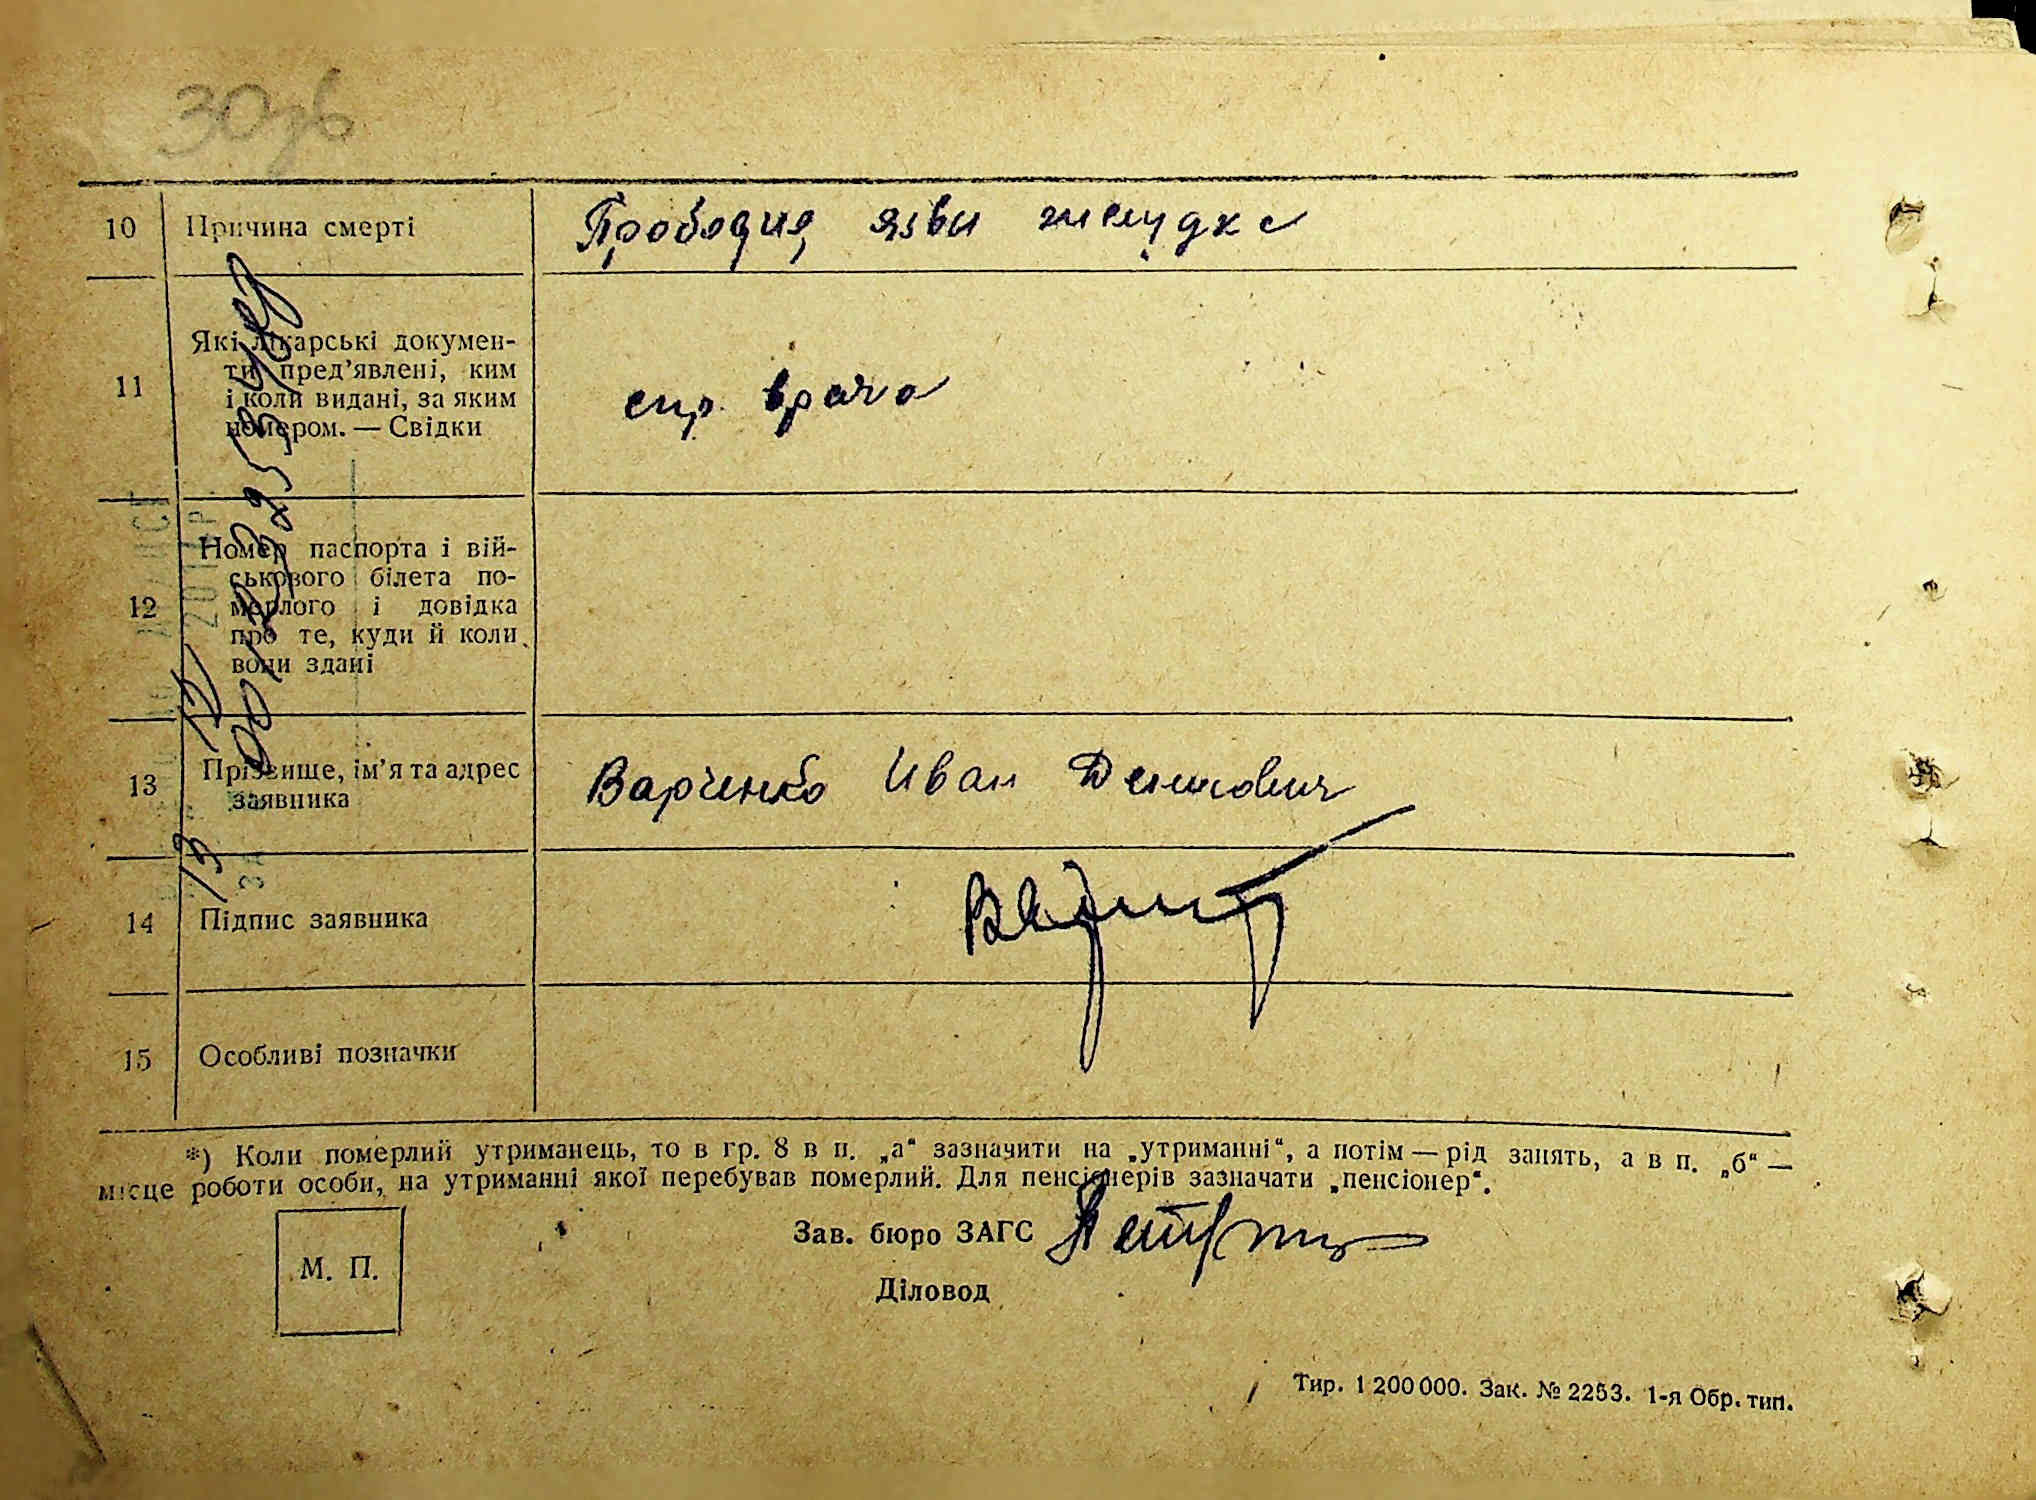 30зв
10 Причина смерті Прободия язви желудка
11 Які лікарські докумен-
ти пред'явлені, ким
і коли видані, за яким
номером. — Свідки
спр. врача
12 Номер паспорта і вій-
ськового білета по-
мерлого і довідка
про те, куди й коли
вони здані
13 Прізвище, ім'я та адрес
заявника
Варченко Иван Денисович
14 Підпис заявника
15 Особливі позначки
*) Коли померлий утриманець, то в гр. 8 в п. „а“ зазначити на „утриманні“, а потім — рід занять, а в п. „б“ —
місце роботи особи, на утриманні якої перебував померлий. Для пенсіонерів зазначати „пенсіонер“.
Зав. бюро ЗАГС
М. П.
Діловод
Тир. 1 200 000. Зак. № 2253. 1-я Обр. тип.